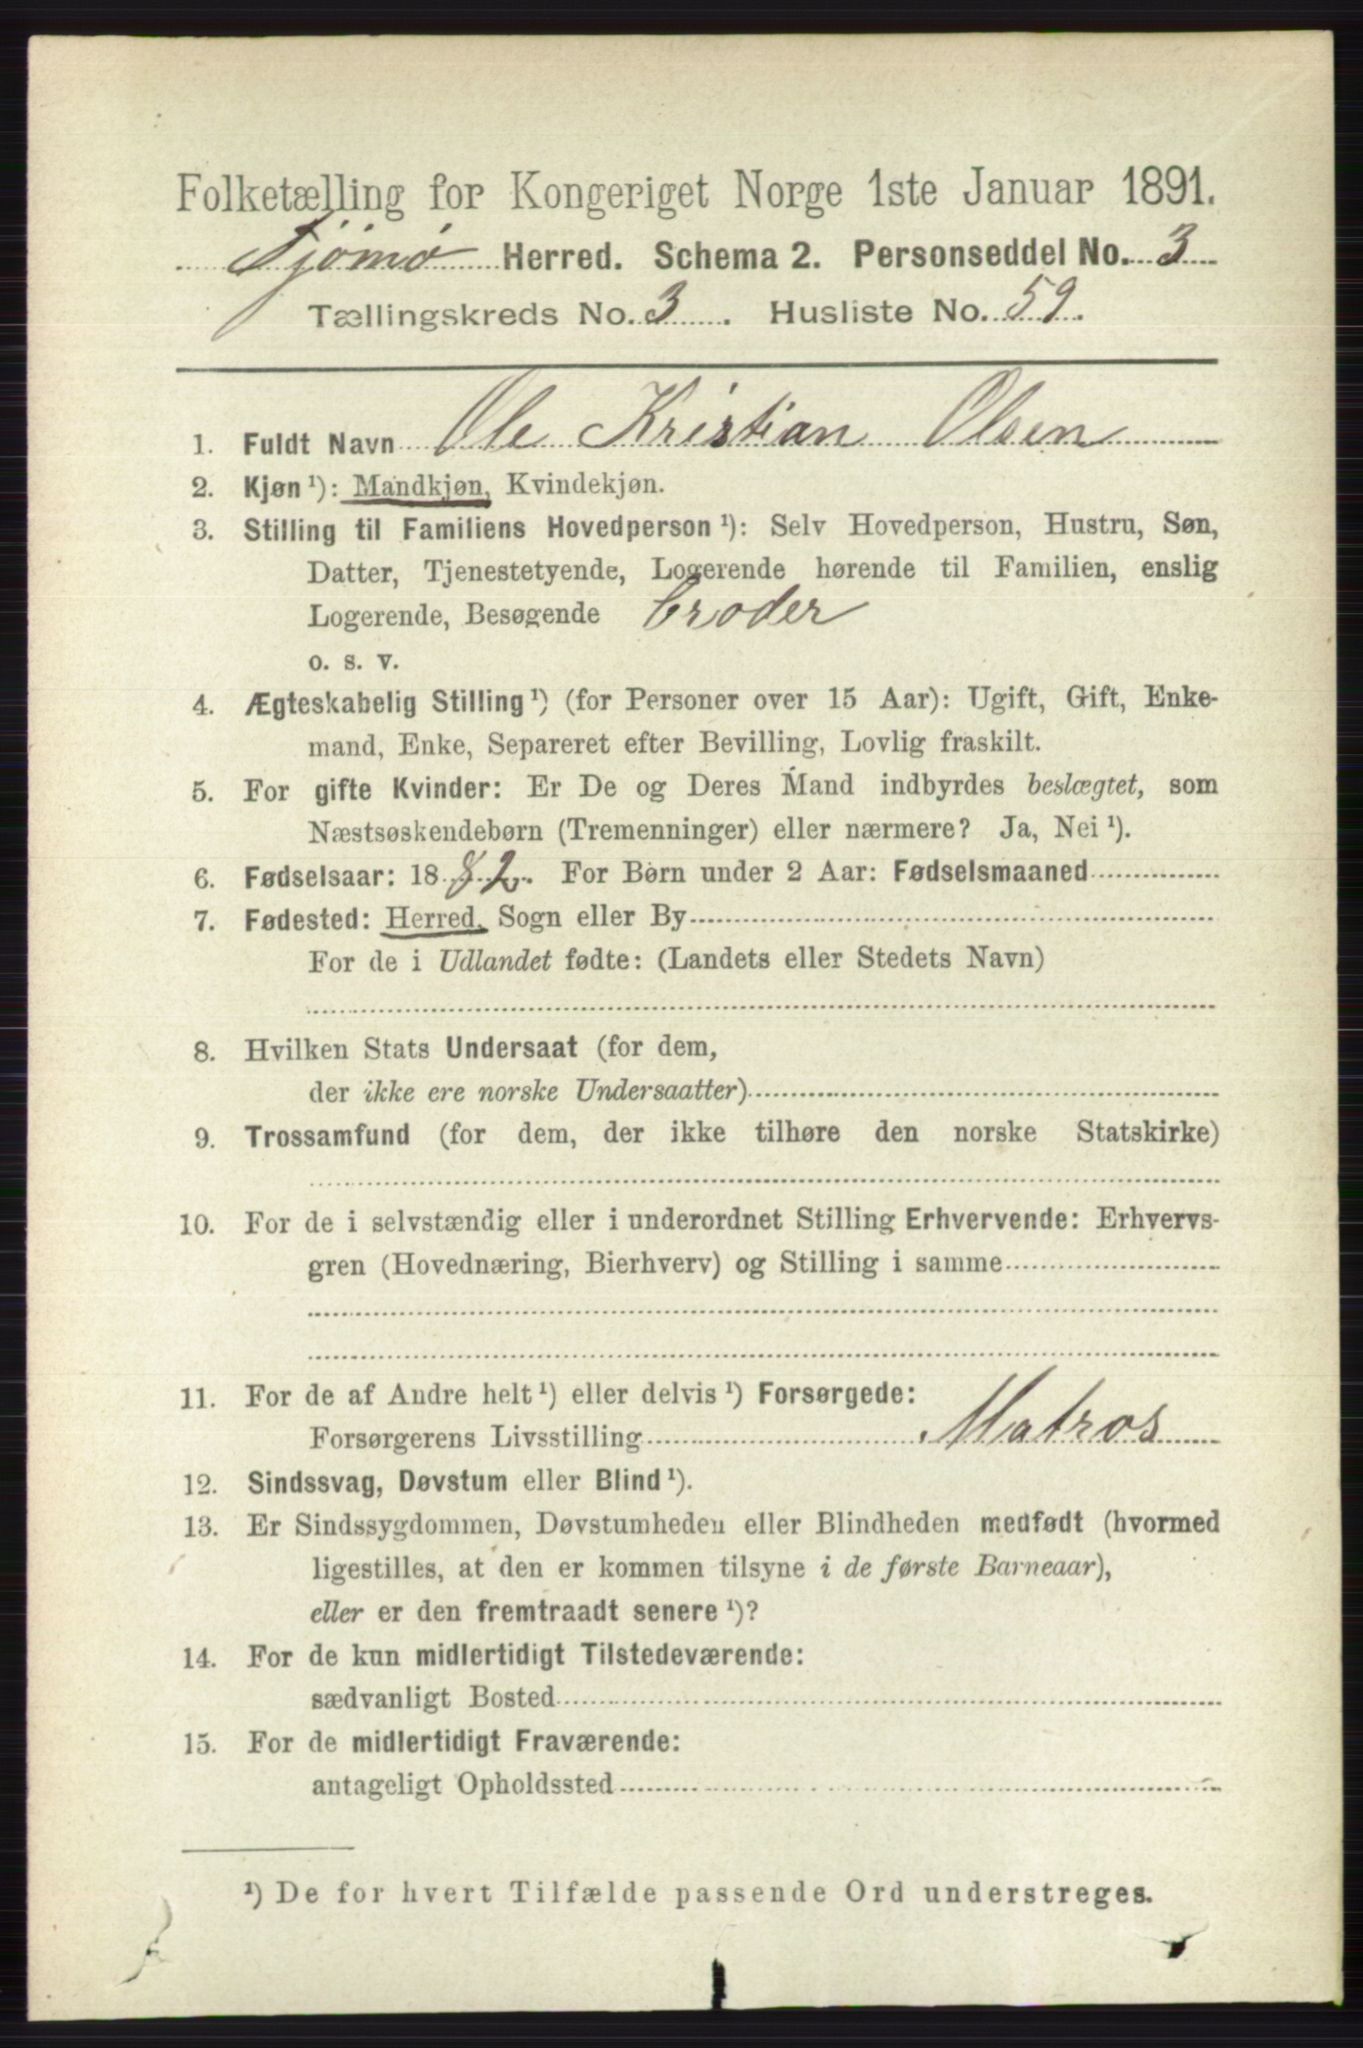 Folketælling for Kongeriget Norge 1ste Januar 1891.
Tjømø Herred. Schema 2. Personseddel No. 3
Tællingskreds No. 3. Husliste No. 59.
1. Fuldt Navn Ole Kristian Olsen
2. Kjøn ¹): Mandkjøn, Kvindekjøn.
3. Stilling til Familiens Hovedperson ¹): Selv Hovedperson, Hustru, Søn,
Datter, Tjenestetyende, Logerende hørende til Familien, enslig
Logerende, Besøgende broder
o. s. v.
4. Ægteskabelig Stilling ¹) (for Personer over 15 Aar): Ugift, Gift, Enke-
mand, Enke, Separeret efter Bevilling, Lovlig fraskilt.
5. For gifte Kvinder: Er De og Deres Mand indbyrdes beslægtet, som
Næstsøskendebørn (Tremenninger) eller nærmere? Ja, Nei ¹).
6. Fødselsaar: 1882. For Børn under 2 Aar: Fødselsmaaned
7. Fødested: Herred, Sogn eller By
For de i Udlandet fødte: (Landets eller Stedets Navn)
8. Hvilken Stats Undersaat (for dem,
der ikke ere norske Undersaatter)
9. Trossamfund (for dem, der ikke tilhøre den norske Statskirke)
10. For de i selvstændig eller i underordnet Stilling Erhvervende: Erhvervs-
gren (Hovednæring, Bierhverv) og Stilling i samme
11. For de af Andre helt ¹) eller delvis ¹) Forsørgede:
Forsørgerens Livsstilling Matros
12. Sindssvag, Døvstum eller Blind ¹).
13. Er Sindssygdommen, Døvstumheden eller Blindheden medfødt (hvormed
ligestilles, at den er kommen tilsyne i de første Barneaar),
eller er den fremtraadt senere ¹)?
14. For de kun midlertidigt Tilstedeværende:
sædvanligt Bosted
15. For de midlertidigt Fraværende:
antageligt Opholdssted
¹) De for hvert Tilfælde passende Ord understreges.